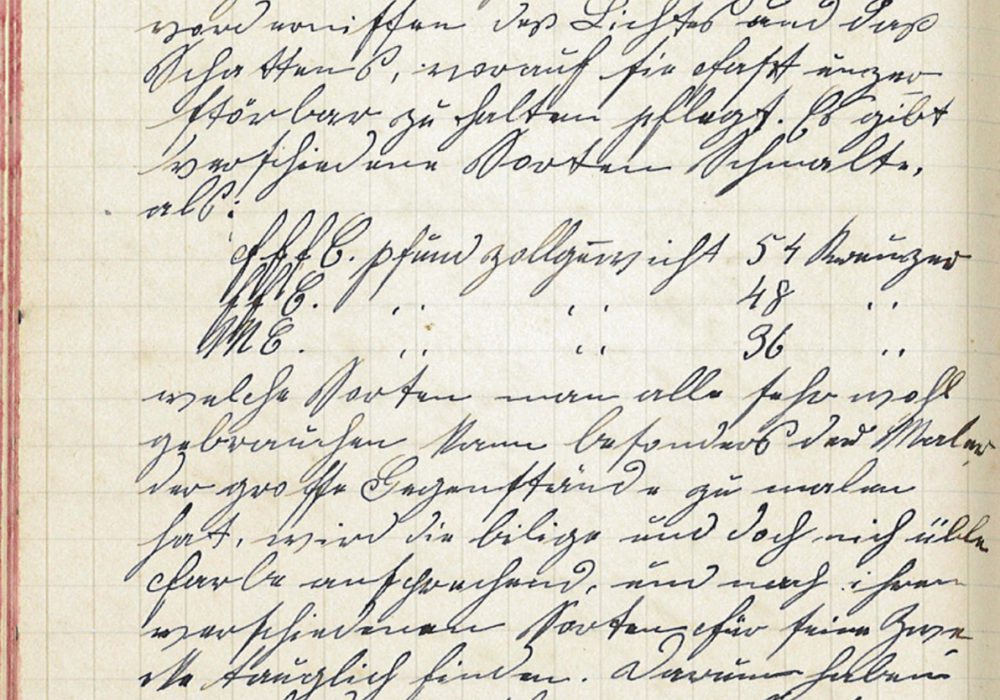 des Lichtes und das
Schattens, worauf sie fast unzer
störbar zu halten pflegt. Es gibt
verschiedene Sorten Schmalte,
als:
fffE. pfund zollgewicht 54 Kreuzer
ffE. " " 48 "
ME. " " 36 "
welche Sorten man alle sehr wohl
gebrauchen kann besonders der Maler
der große Gegenstände zu malen
hat, wird die bilige und doch nich üble
Farbe ansprechend, und nach ihren
verschiedenen Sorten für seine Zwe
cke tauglich finden. Darum haben